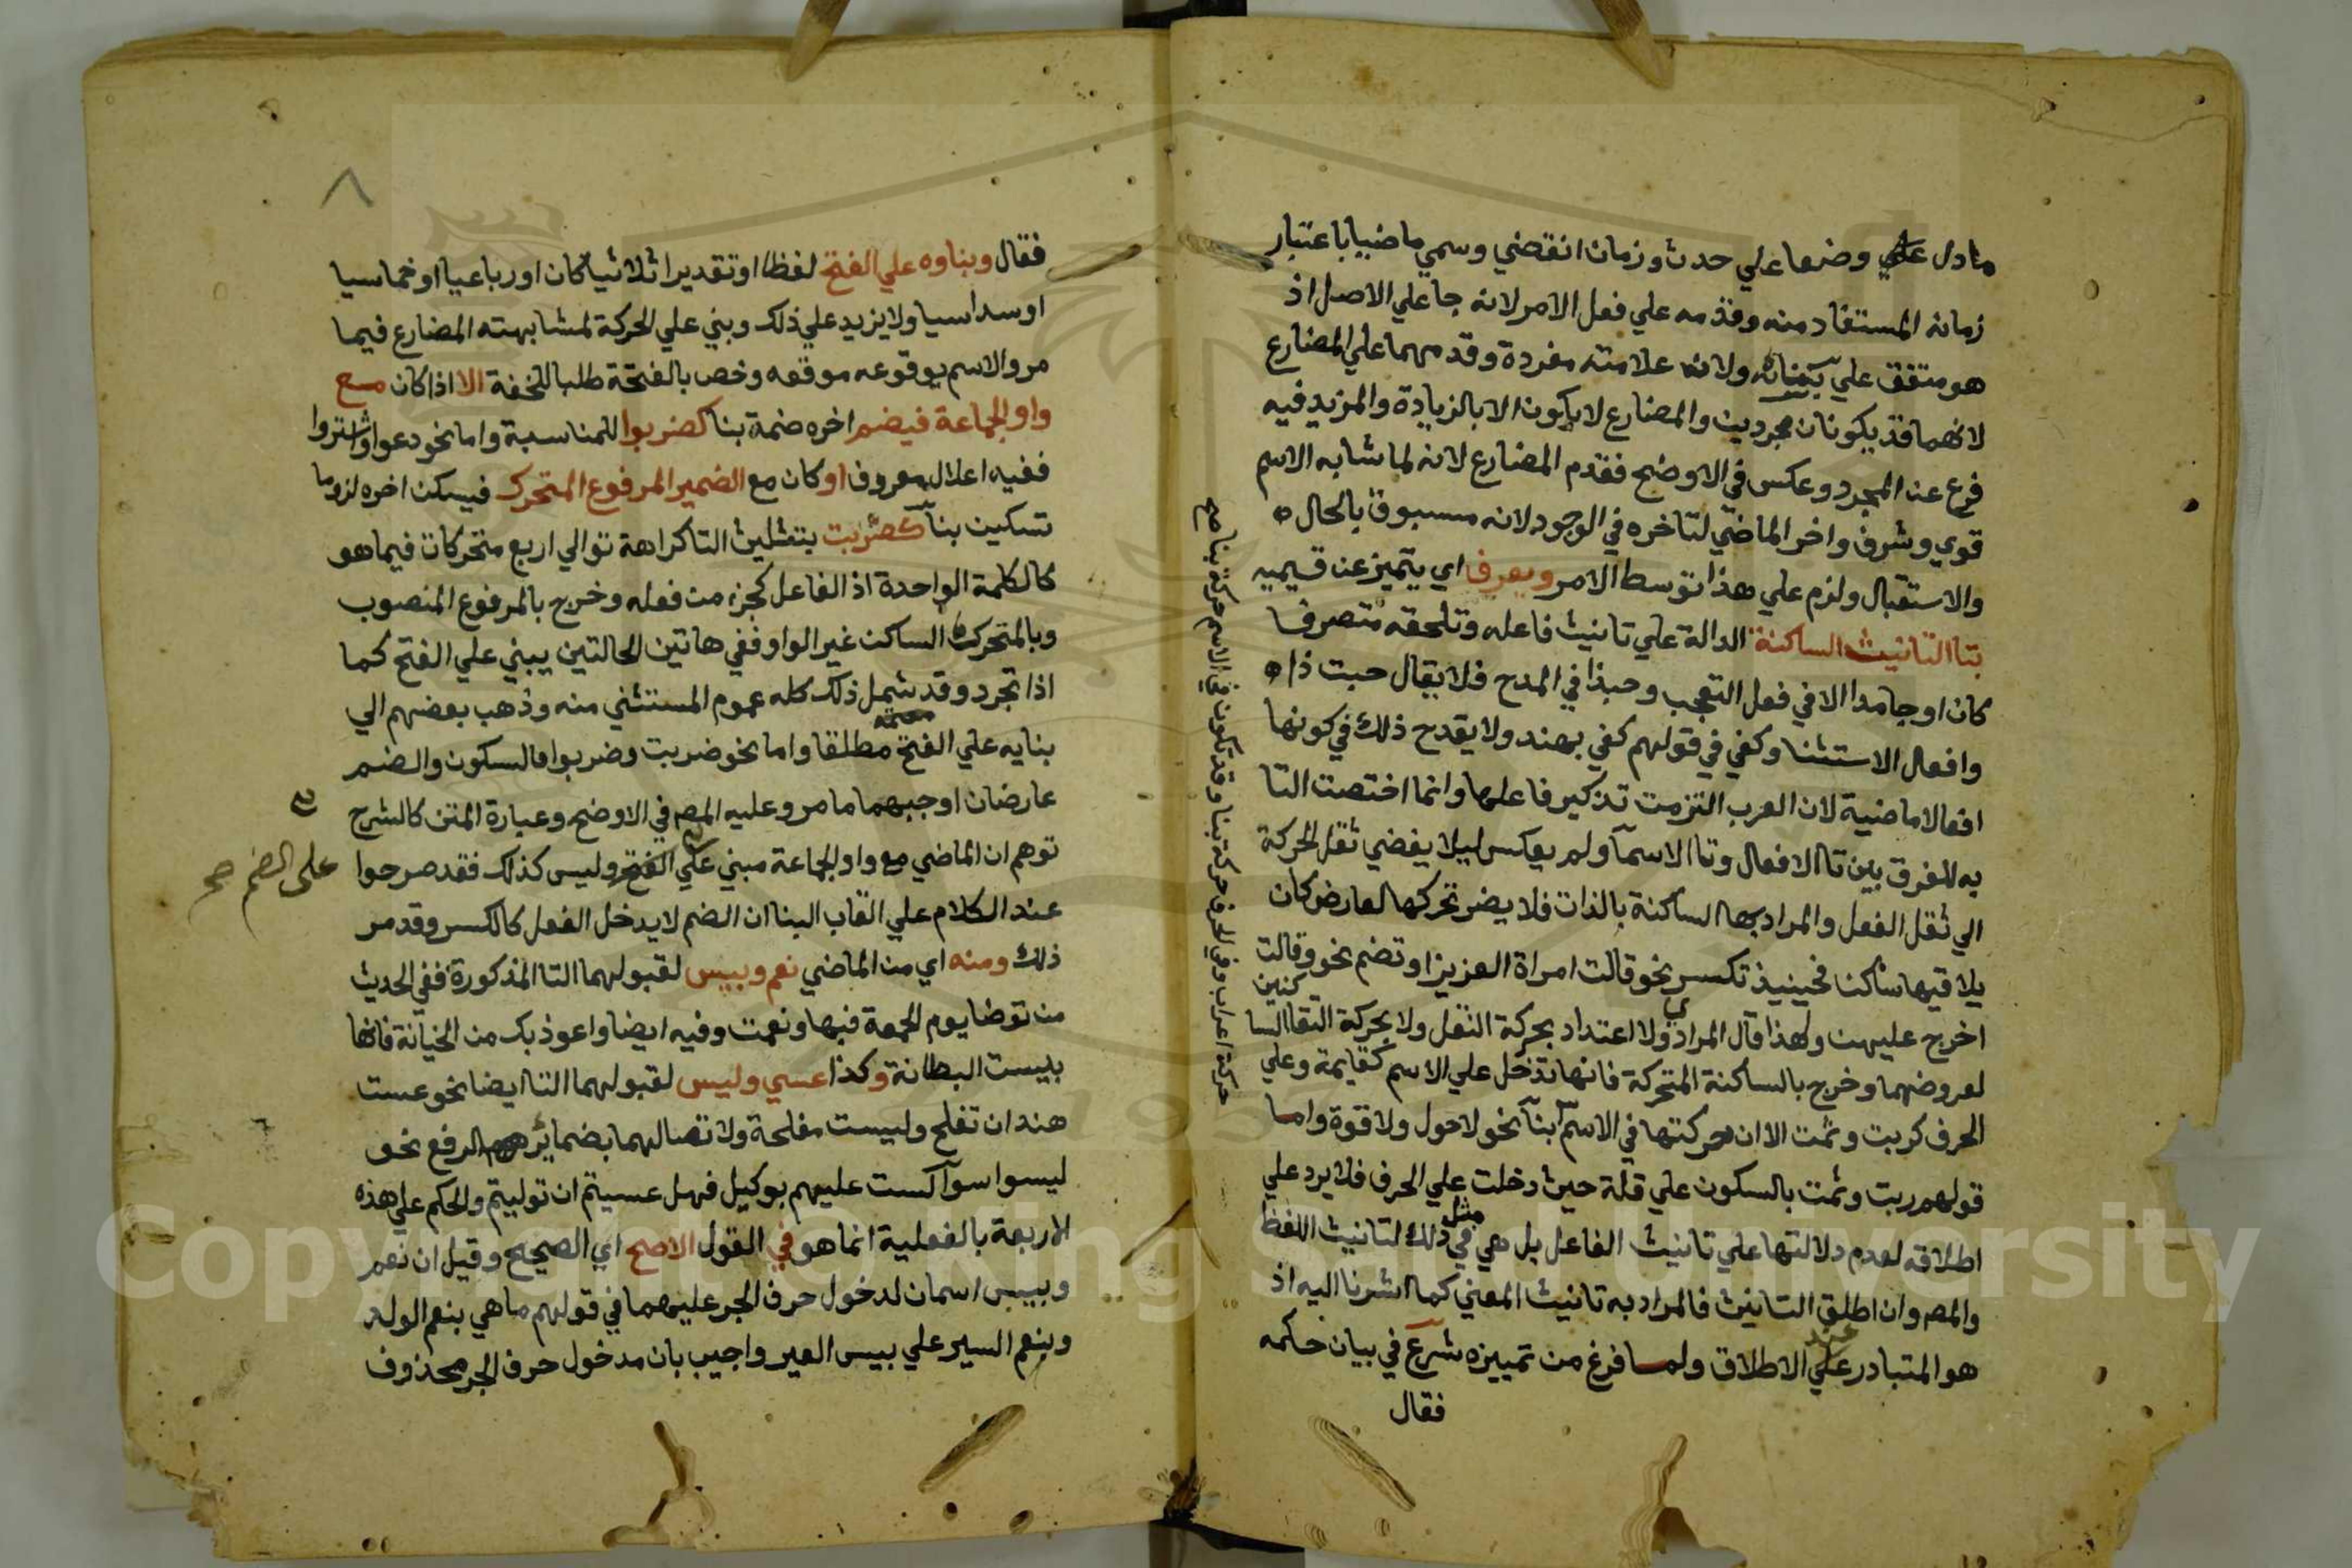 مادل علي وضعا علي حدث وزمان انقضي وسمي ماضيا باعتبار
زمانه المستفاد منه وقدمه علي فعل الامر لانه جا علي الاصل اذ
هو متفق علي بنائه ولان علامته مفردة وقدمهما علي المضارع
لانهما قد يكونان مجردين والمضارع لا يكون الا بالزيادة والمزيد فيه
فرع عن المجرد وعكس في الاوضح فقدم المضارع لانه لما شابه الاسم
قوي وشرف واخر الماضي لتاخره في الوجود لانه مسبوق بالحال
والاستقبال ولزم علي هذا توسط الامر ويعرف اي يتميز عن قسيميه
بتا التانيث الساكنة الدالة علي تانيث فاعله وتلحقه متصرفا
كان او جامدا الا في فعل التعجب وحبذا في المدح فلا يقال حبت ذا
وافعال الاستثنا وكفي في قولهم كفي بهند ولا يقدح ذلك في كونها
افعالا ماضية لان العرب التزمت تذكير فاعلها وانما اختصت التا
به للفرق بين تا الافعال وتا الاسمآ ولم يعكس ليلا يفضي ثقل الحركة
الي ثقل الفعل والمراد بها الساكنة بالذات فلا يضر تحركها لعارض كان
يلاقيها ساكن فحينيذ تكسر نحو قالت امراة العزيز او تضم نحو وقالت
اخرج عليهن ولهذا قال المرادي ولا اعتداد بحركة النقل ولا بحركة التقا السا كنين
لعروضهما وخرج بالساكنة المتحركة فانها تدخل علي الاسم كقايمة وعلي
الحرف كربت وثمت الا ان حركتها في الاسم بنآ نحو لاحول ولا قوة واما
قولهم ربت وثمت بالسكون علي قلة حيث دخلت علي الحرف فلا يرد علي
اطلاقه لعدم دلالتها علي تانيث الفاعل بل هي في مثل ذلك لتانيث اللفظ
والمص وان اطلق التانيث فالمراد به تانيث المعني كما اشرنا اليه اذ
هو المتبادر عند الاطلاق ولما فرغ من تمييزه شرع في بيان حكمه
فقال
حركة اعراب وفي الحرف حركة بنا وقد تكون في الاسم حركة بنا صح
٨
فقال وبناوه علي الفتح لفظا او تقديرا ثلاثيا كان او رباعيا او خماسيا
او سداسيا ولا يزيد علي ذلك وبني علي الحركة لمشابهته المضارع فيما
مر والاسم بوقوعه موقعه وخص بالفتحة طلبا للخفة الا اذا كان مع
واو الجماعة فيضم اخره ضمة بنا كضربوا للمناسبة واما نحو دعوا واشتروا
ففيه اعلال معروف او كان مع الضمير المرفوع المتحرك فيسكن اخره لزوما
تسكين بنآ كضربت بتثليث التا كراهة توالي اربع متحركات فيما هو
كالكلمة الواحدة اذ الفاعل كجزء من فعله وخرج بالمرفوع المنصوب
وبالمتحرك الساكن غير الواو ففي هاتين الحالتين يبني علي الفتح كما
اذا تجرد وقد شمل ذلك كله عموم المستثني منه وذهب بعضهم الي
بنايه علي الفتح مطلقا واما نحو ضربت وضربوا فالسكون والضم
عارضان اوجبهما ما مر وعليه المص في الاوضح وعبارة المتن كالشرح
توهم ان الماضي مع واو الجماعة مبني علي الفتح وليس كذلك فقد صرحوا
على الضم صح
عند الكلام علي القاب البنا ان الضم لا يدخل الفعل كالكسر وقد مر
ذلك ومنه اي من الماضي نعم وبيس لقبولهما التا المذكورة ففي الحديث
من توضا يوم الجمعة فبها ونعمت وفيه ايضا واعوذ بك من الخيانة فانها
بيست البطانة وكذا عسي وليس لقبولهما التا ايضا نحو عست
هند ان تفلح وليست مفلحة ولاتصالهما بضمائر الرفع نحو
ليسوا سوآ لست عليهم بوكيل فهل عسيتم ان توليتم والحكم علي هذه
الاربعة بالفعلية انما هو في القول الاصح اي الصحيح وقيل ان نعم
وبيس اسمان لدخول حرف الجر عليهما في قولهم ما هي بنعم الولد
ونعم السير علي بيس العير واجيب بان مدخول حرف الجر محذوف
Copyright © King Saud University
1957